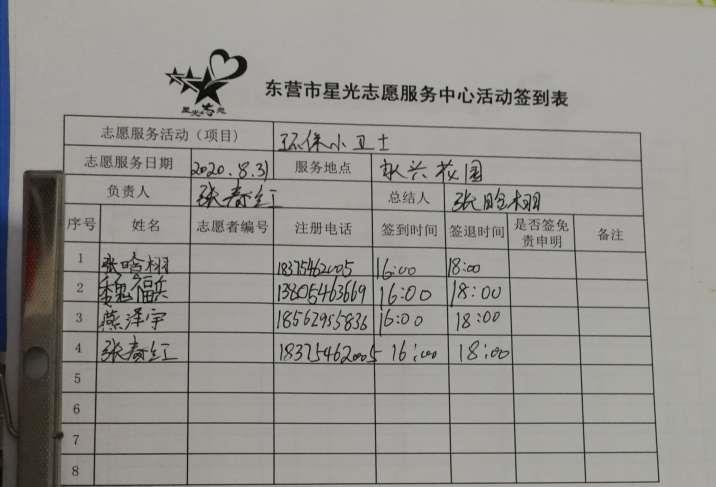 星光志愿
东营市星光志愿服务中心活动签到表
志愿服务活动（项目） 环保小卫士
志愿服务日期 2020.8.31 服务地点 花园
负责人 张春红 总结人 张晗栩
序号 姓名 志愿者编号 注册电话 签到时间 签退时间 是否签免责申明 备注
1 张晗栩 18375462005 16:00 18:00
2 魏福兵 13805463669 16:00 18:00
3 燕泽宇 18562955836 16:00 18:00
4 张春红 18375462005 16:00 18:00
5
6
7
8